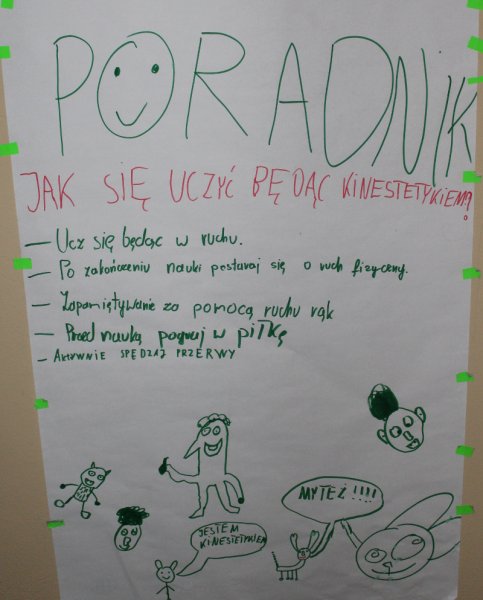 PORADNIK
JAK SIĘ UCZYĆ BĘDĄC KINESTETYKIEM?
– Ucz się będąc w ruchu.
– Po zakończeniu nauki postaraj się o ruch fizyczny.
– Zapamiętywanie za pomocą ruchu rąk
– Przed nauką pograj w piłkę
– AKTYWNIE SPĘDZAJ PRZERWY
MY TEŻ !!!!
JESTEM
KINESTETYKIEM